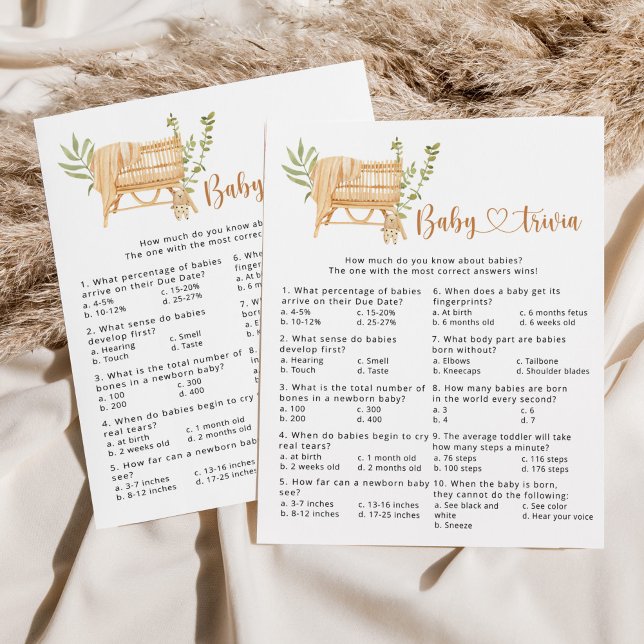 Baby
How much do you know about babies?
The one with the most correct
1. What percentage of babies
arrive on their Due Date?
a. 4-5% c. 15-20%
b. 10-12% d. 25-27%
2. What sense do babies
develop first?
a. Hearing c. Smell
b. Touch d. Taste
3. What is the total number of
bones in a newborn baby?
a. 100 c. 300
b. 200 d. 400
4. When do babies begin to cry
real tears?
a. at birth c. 1 month old
b. 2 weeks old d. 2 months old
5. How far can a newborn baby
see?
a. 3-7 inches c. 13-16 inches
b. 8-12 inches d. 17-25 inches
6.
fingerp
a. At b
b. 6 m
7.
born
a. E
b. K
8.
in
a.
b.
9.
Baby trivia
How much do you know about babies?
The one with the most correct answers wins!
1. What percentage of babies
arrive on their Due Date?
a. 4-5% c. 15-20%
b. 10-12% d. 25-27%
2. What sense do babies
develop first?
a. Hearing c. Smell
b. Touch d. Taste
3. What is the total number of
bones in a newborn baby?
a. 100 c. 300
b. 200 d. 400
4. When do babies begin to cry
real tears?
a. at birth c. 1 month old
b. 2 weeks old d. 2 months old
5. How far can a newborn baby
see?
a. 3-7 inches c. 13-16 inches
b. 8-12 inches d. 17-25 inches
6. When does a baby get its
fingerprints?
a. At birth c. 6 months fetus
b. 6 months old d. 6 weeks old
7. What body part are babies
born without?
a. Elbows c. Tailbone
b. Kneecaps d. Shoulder blades
8. How many babies are born
in the world every second?
a. 3 c. 6
b. 4 d. 7
9. The average toddler will take
how many steps a minute?
a. 76 steps c. 116 steps
b. 100 steps d. 176 steps
10. When the baby is born,
they cannot do the following:
a. See black and c. See color
white d. Hear your voice
b. Sneeze